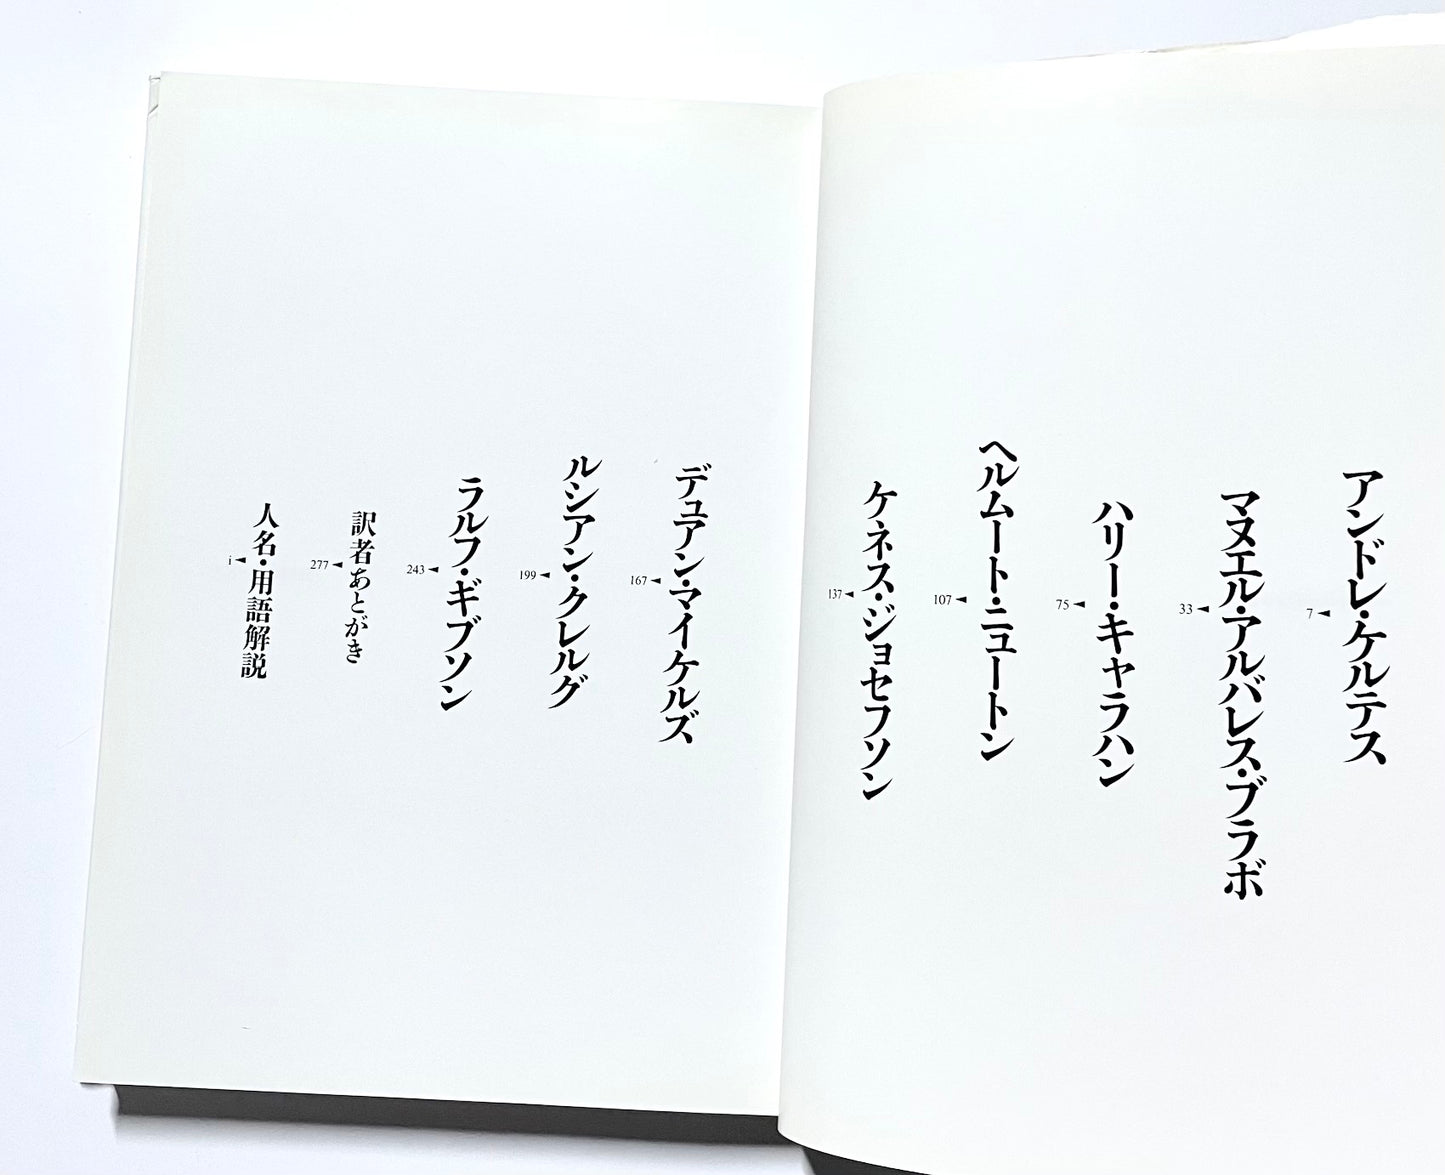 アンドレ・ケルテス
7◄
マヌエル・アルバレス・ブラボ
33◄
ハリー・キャラハン
75◄
ヘルムート・ニュートン
107◄
ケネス・ジョセフソン
137◄
デュアン・マイケルズ
167◄
ルシアン・クレルグ
199◄
ラルフ・ギブソン
243◄
訳者あとがき
277◄
人名・用語解説
i◄